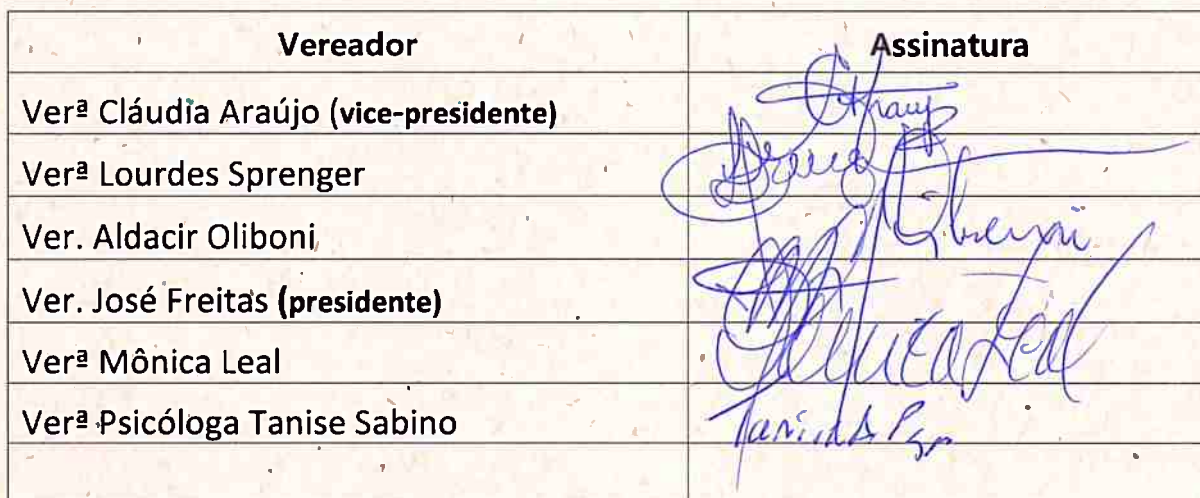 Vereador Assinatura
Verª Cláudia Araújo (vice-presidente)
Verª Lourdes Sprenger
Ver. Aldacir Oliboni
Ver. José Freitas (presidente)
Verª Mônica Leal Mônica Leal
Verª Psicóloga Tanise Sabino